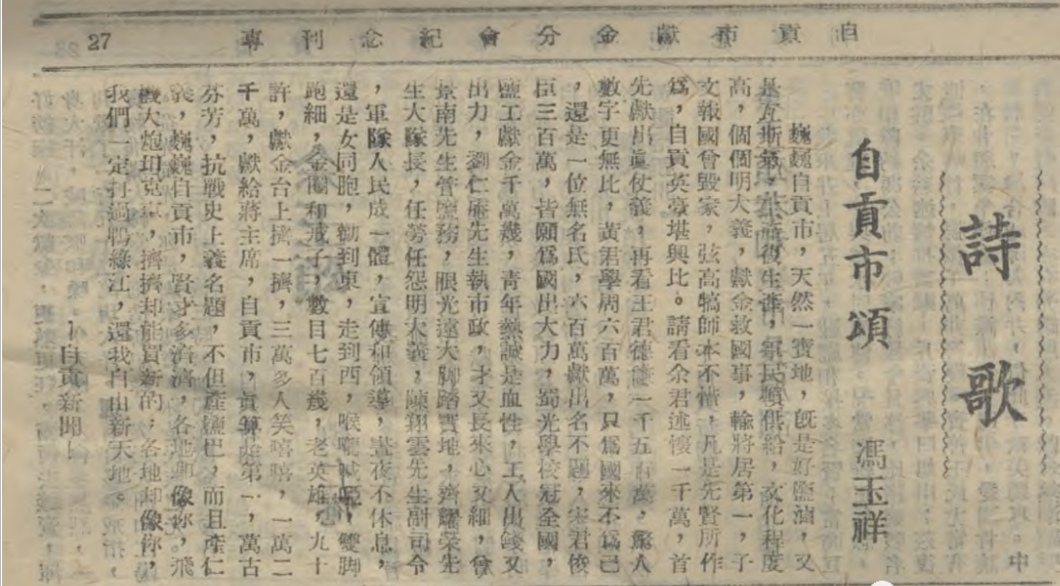 自貢市獻金分會紀念刊專
27
詩歌
自貢市頌
馮玉祥
巍巍自貢市，天然一寶地，旣是好鹽滷，又
是瓦斯氣，生產，軍民賴供給，文化程度
高，個個明大義，獻金救國事，輸將居第一，子
文報國曾毀家，弦高犒師本不惜，凡是先賢所作
爲，自貢英豪堪與比。請看余君述懷一千萬，首
先獻出眞仗義，再看王君德一千五百萬，驚人
數字更無比，黃君學周六百萬，只爲國來不爲己
，還是一位無名氏，六百萬獻出名不題，宋君俊
臣三百萬，皆願爲國出大力，蜀光學校冠全國，
鹽工獻金千萬幾，青年熱誠是血性，工人出錢又
出力，劉仁庵先生執市政，才又長來心又細，曾
景南先生管鹽務，眼光遠大脚踏實地，齊耀榮先
生大隊長，任勞任怨明大義，陳翔雲先生副司令
，軍隊人民成一體，宣傳和領導，晝夜不休息，
還是女同胞，勸到東，走到西，喉嚨，雙脚
跑細，金鐲和戒子，數目七百幾，老英雄，九十
許，獻金台上擠一擠，三萬多人笑嘻嘻，一萬二
千萬，獻給蔣主席，自貢市，眞算第一，萬古
芬芳，抗戰史上義名題，不但產鹽巴，而且產仁
義，巍巍自貢市，賢才多濟濟，各地像你。飛
機大炮坦克車，擠擠却能買新的，各地却像你，
我們一定打過鴨綠江，還我自由新天地。
—自貢新聞—